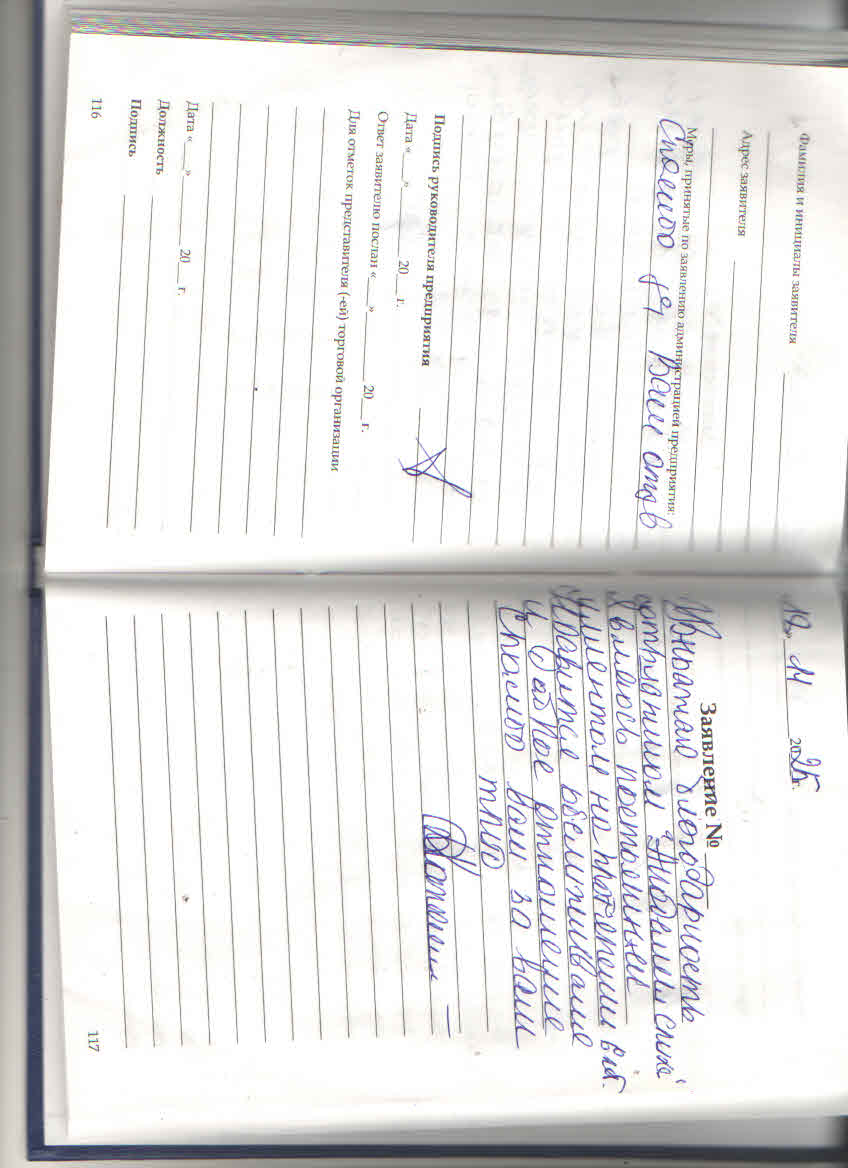 Фамилия и инициалы заявителя
Адрес заявителя
Меры, принятые по заявлению администрацией предприятия:
Спасибо за Ваш отзыв
Подпись руководителя предприятия
Дата «___» ______ 20__ г.
Ответ заявителю послан «___» ______ 20__ г.
Для отметок представителя (-ей) торговой организации
Дата «___» ______ 20__ г.
Должность
Подпись
116
19» 11 2025 г.
Заявление №
Выражаю благодарность
сотрудникам
Являюсь постоянным
клиентом на протяжении
Нравится обслуживание
и отношение
Спасибо Вам за Ваш
труд
117